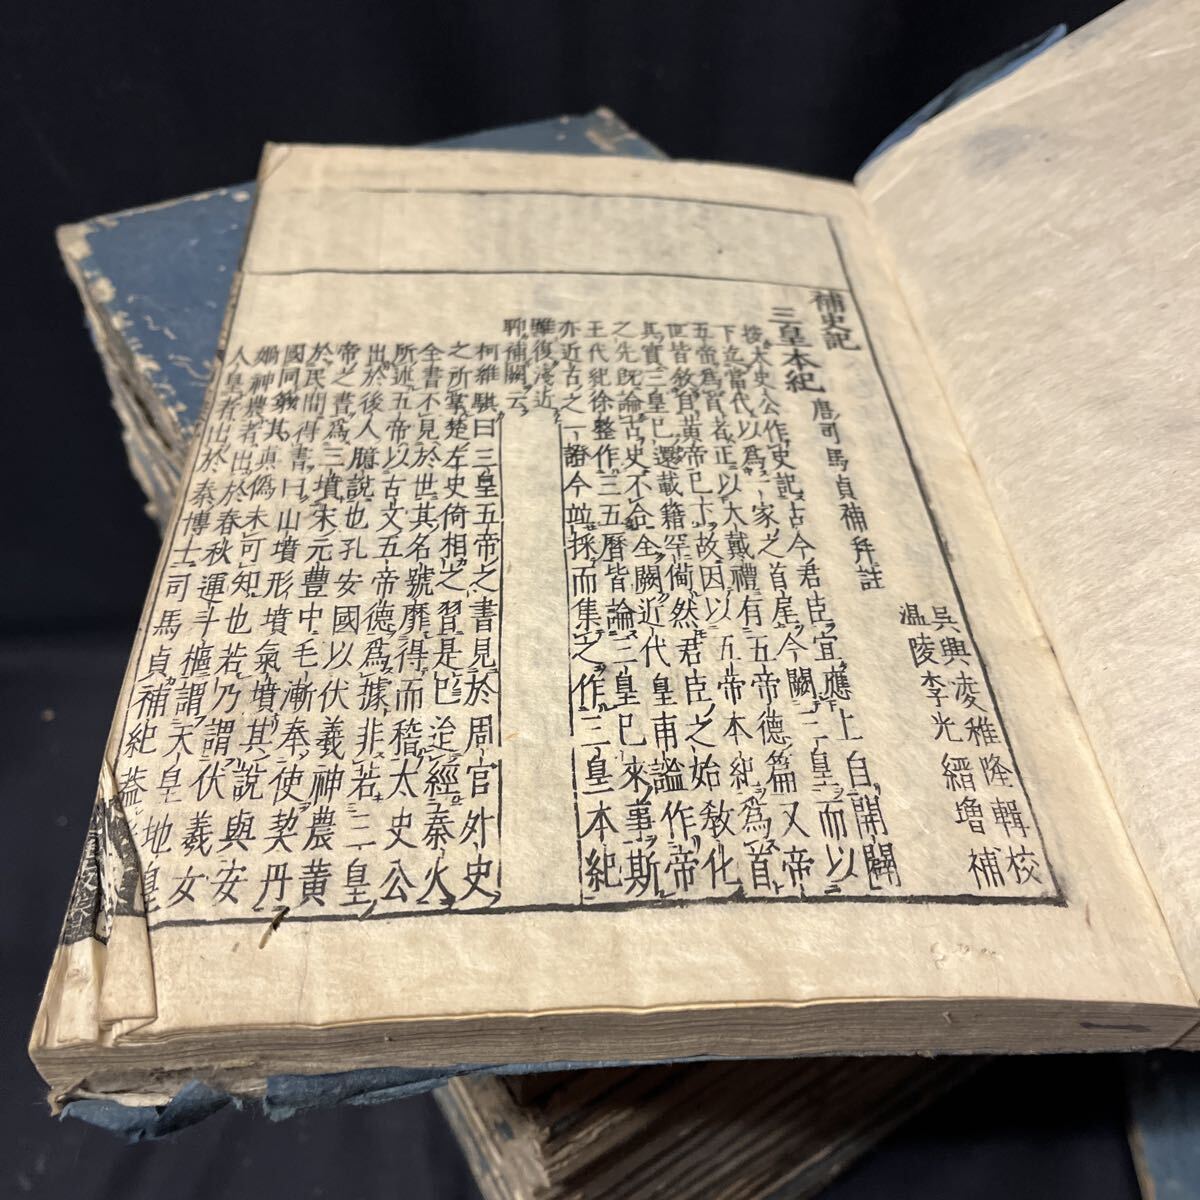 補史記
吳興凌稚隆輯校
溫陵李光縉增補
三皇本紀 唐司馬貞補并註
按太史公作史記古今君臣宜應上自開闢
下迄當代以爲一家之首尾今闕三皇而以
五帝爲首者正以大戴禮有五帝德篇又帝
世皆敘自黃帝已下故因以五帝本紀爲首
其實三皇已還載籍罕備然君臣之始敎化
之先既論古史不合全闕近代皇甫謐作帝
王代紀徐整作三五曆皆論三皇已來事斯
亦近古之一證今並採而集之作三皇本紀
雖復淺近
聊補闕云
柯維騏曰三皇五帝之書見於周官外史
之所掌楚左史倚相之習是已迨經秦火
全書不見於世其名號靡得而稽太史公
所述五帝以古文五帝德爲據非若三皇
出於後人臆說也孔安國以伏羲神農黃
帝之書爲三墳宋元豐中毛漸奉使契丹
於民間得書曰山墳形墳氣墳其說與安
國同義其眞偽未可知也若乃謂伏羲女
媧神農者出於春秋運斗樞謂天皇地皇
人皇者出於秦博士司馬貞補紀蓋